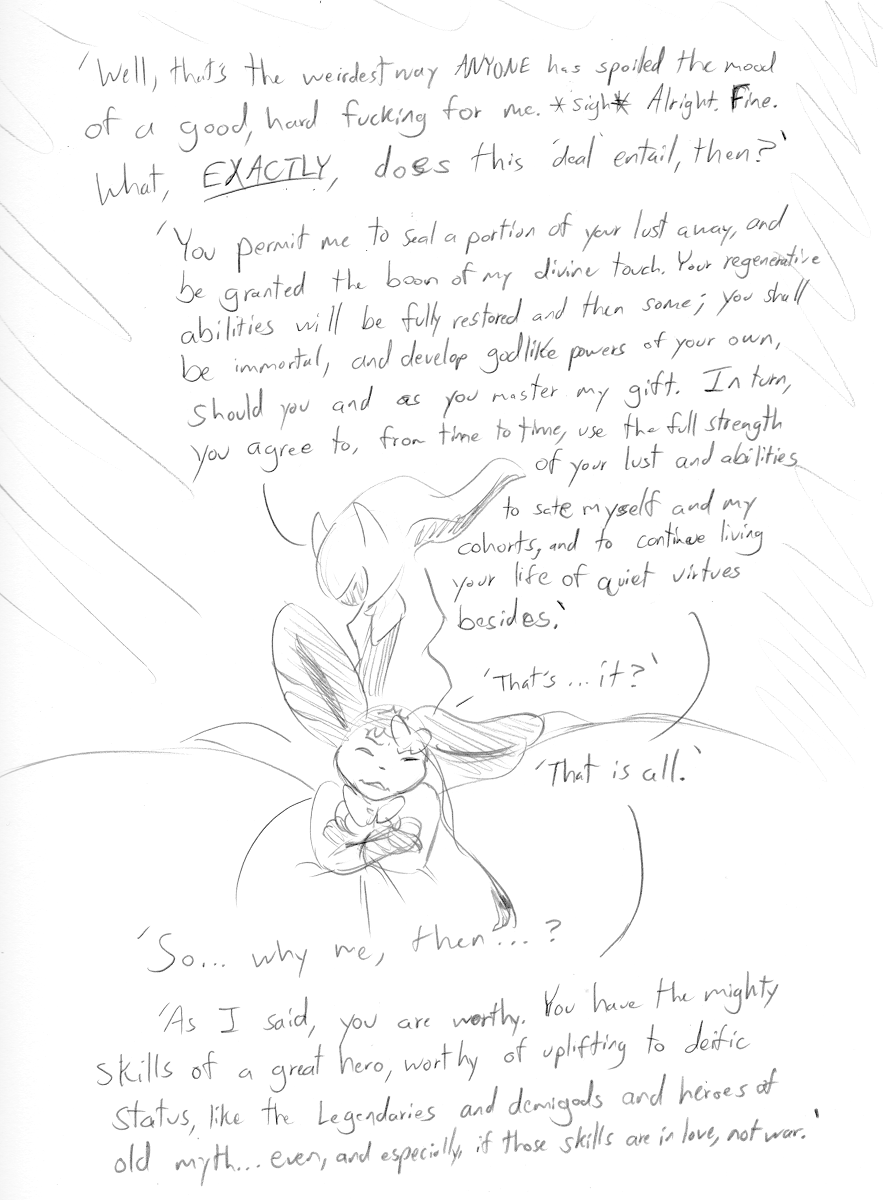 'Well, that's the weirdest way ANYONE has spoiled the mood
of a good, hard fucking for me. *sigh* Alright. Fine.
What, EXACTLY, does this 'deal' entail, then?'
'You permit me to seal a portion of your lust away, and
be granted the boon of my divine touch. Your regenerative
abilities will be fully restored and then some; you shall
be immortal, and develop godlike powers of your own,
should you and as you master my gift. In turn,
you agree to, from time to time, use the full strength
of your lust and abilities
to sate myself and my
cohorts, and to continue living
your life of quiet virtues
besides.'
'That's... it?'
'That is all.'
'So... why me, then...?
'As I said, you are worthy. You have the mighty
skills of a great hero, worthy of uplifting to deific
status, like the Legendaries and demigods and heroes of
old myth... even, and especially, if those skills are in love, not war.'